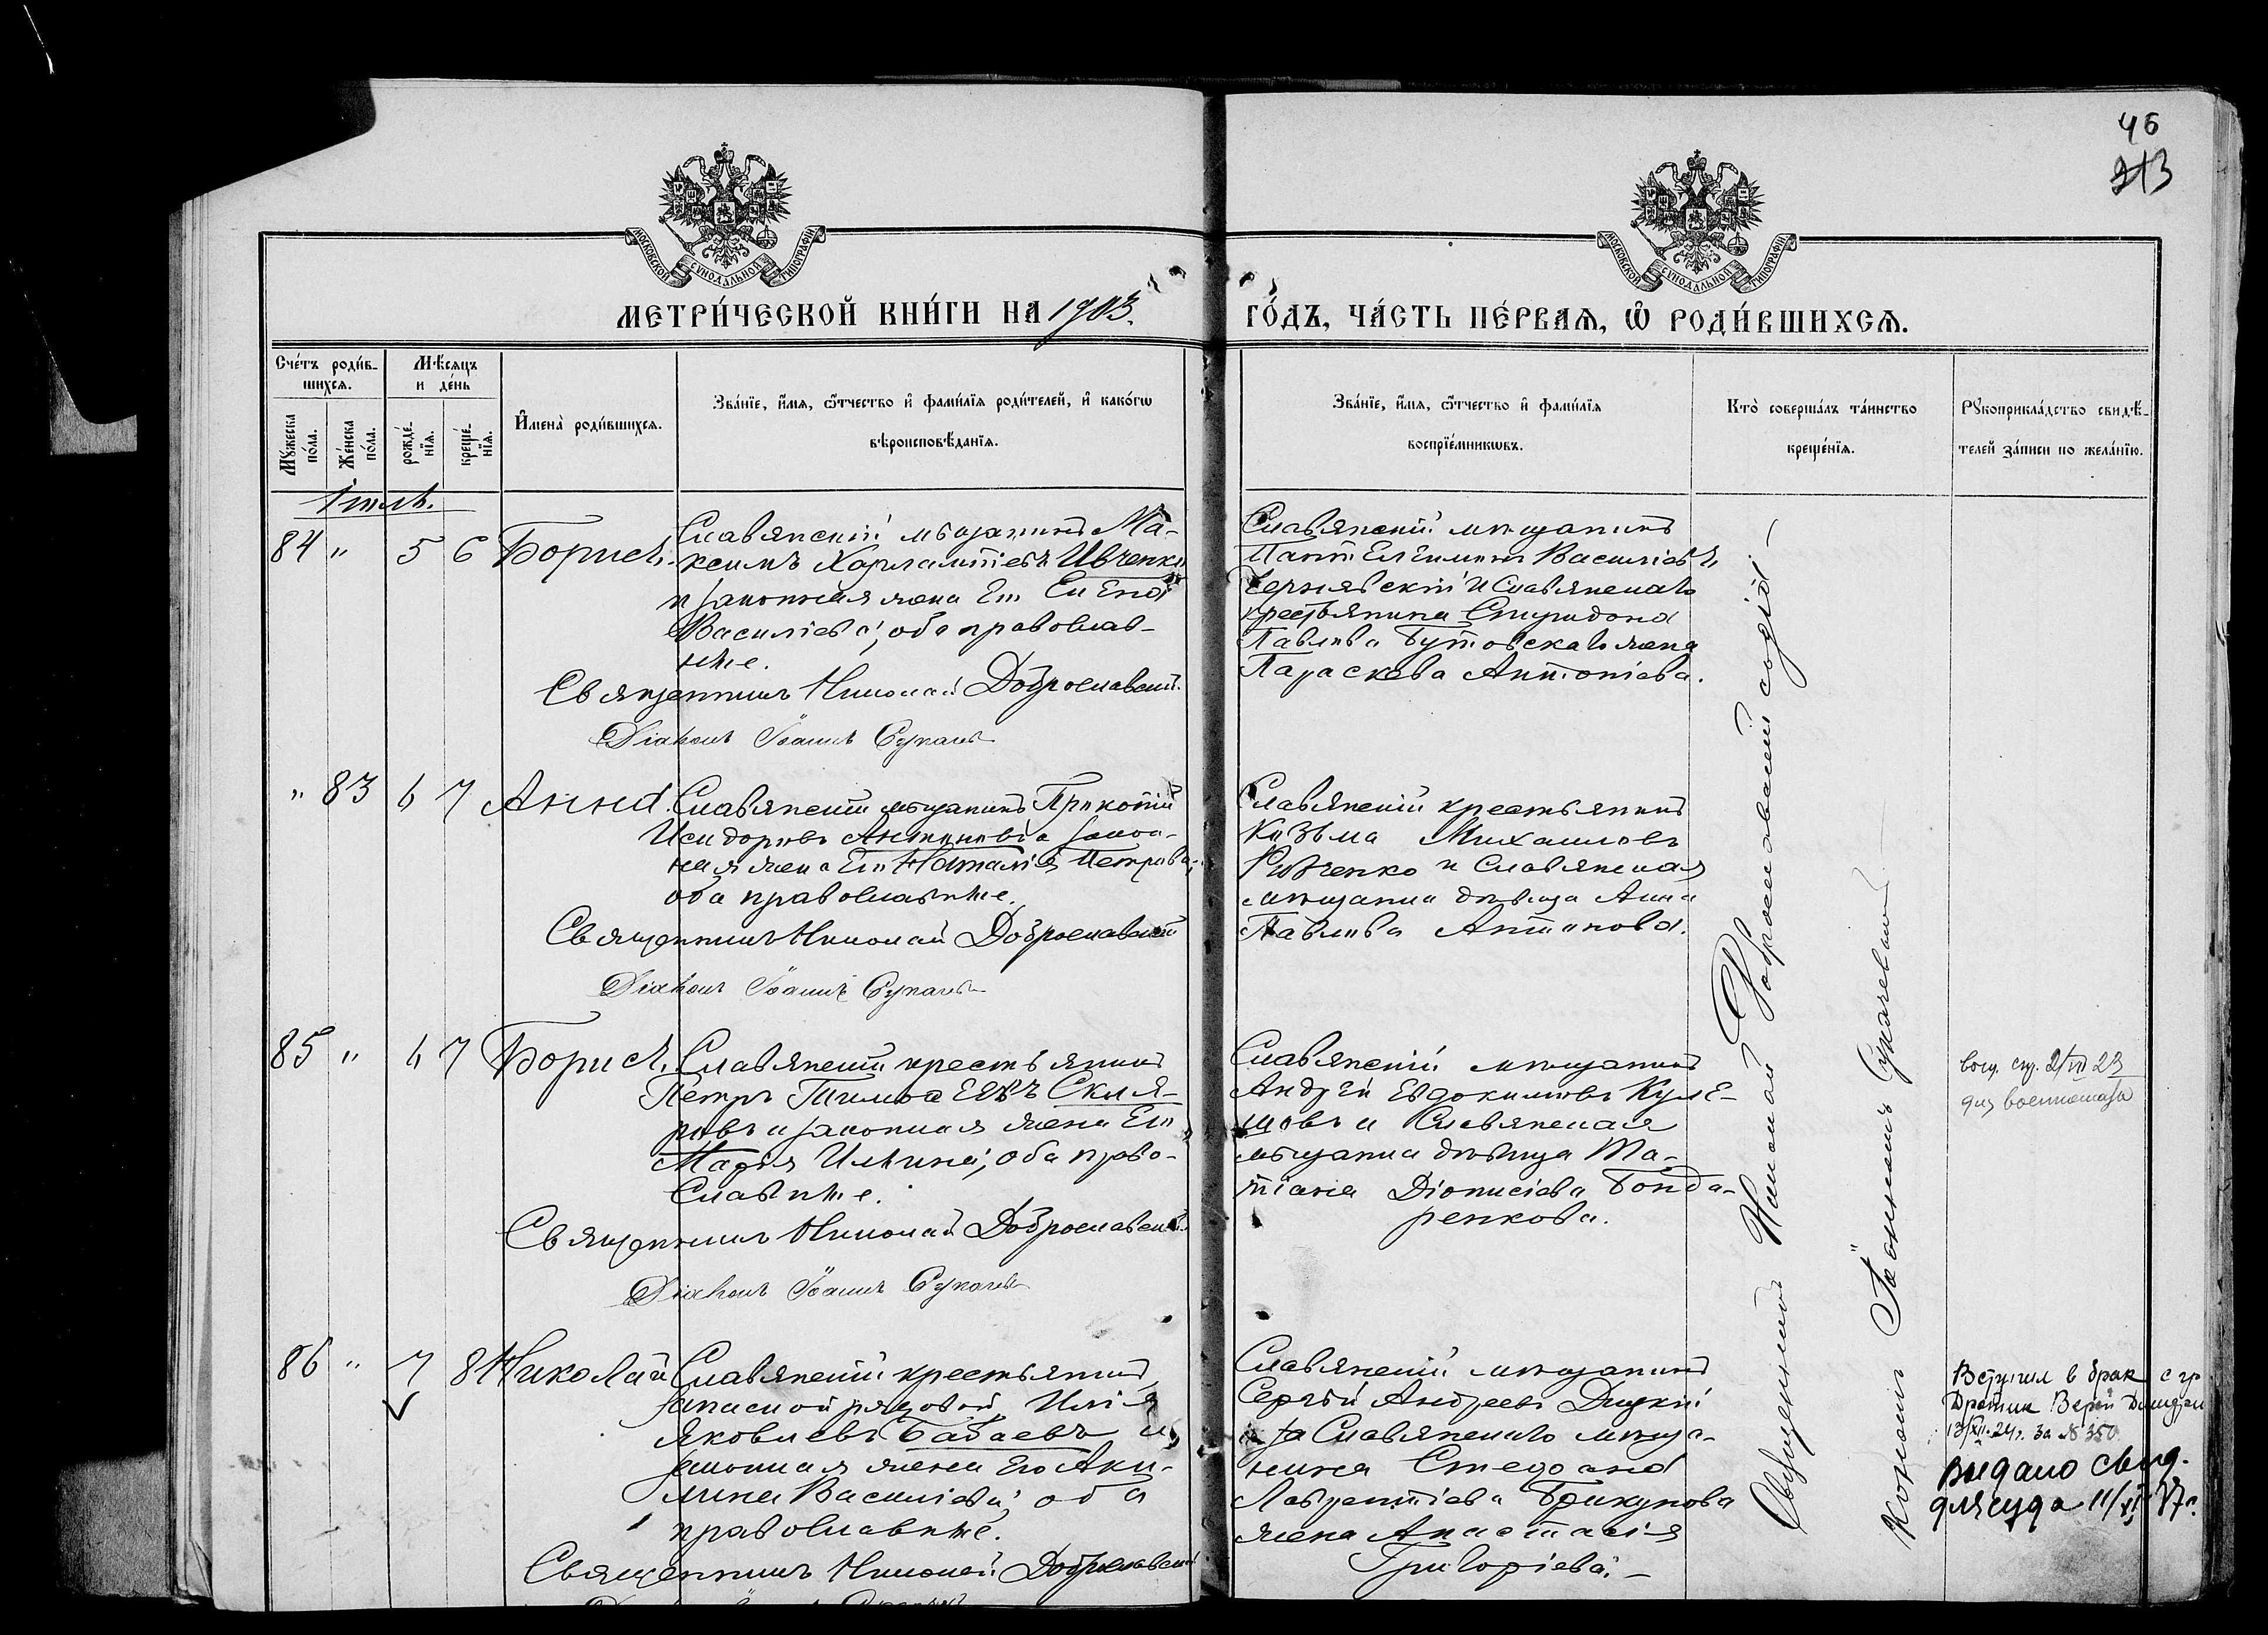 46
213
МОСКОВСКОЙ СУНОДАЛЬНОЙ ТИПОГРАФІИ
МОСКОВСКОЙ СУНОДАЛЬНОЙ ТИПОГРАФІИ
МЕТРИ́ЧЕСКОЙ КНИ́ГИ НА 1903.
ГО́ДЪ, ЧА́СТЬ ПЕ́РВАЯ, Ѡ РОДИ́ВШИХСЯ.
Сче́тъ роди́в-
шихся.
Мѣ́сяцъ
и де́нь
Му́жеска по́ла.
Же́нска по́ла.
рожде́нїя.
креще́нїя.
И҆мена̀ роди́вшихся.
Зва́нїе, и҆́мя, ѻ҆́тчество и҆ фами́лїя роди́телей, и҆ како́гѡ
вѣроисповѣ́данїя.
Зва́нїе, и҆́мя, ѻ҆́тчество и҆ фами́лїя
воспрїе́мникѡвъ.
Кто̀ соверша́лъ та́инство
креще́нїя.
Рꙋкоприкла́дство свидѣ́-
телей за́писи по жела́нїю.
Іюль.
84 " 5 6 Борисъ.
Славянскій мѣщанинъ Ма-
ксимъ Харлампіевъ Ивченко
и законная жена его Елена
Васильева, оба православ-
ные.
Священникъ Николай Доброславскій.
Діаконъ Іоаннъ Сукачевъ
Славянскій мѣщанинъ
Пантелеимонъ Васильевъ
Чернявскій и Славянскаго
крестьянина Спиридона
Павлова Бутовскаго жена
Параскева Антоніева.
" 83 6 7 Анна.
Славянскій мѣщанинъ Прокопій
Исидоровъ Антоновъ и закон-
ная жена его Наталія Петрова,
оба православные.
Священникъ Николай Доброславскій
Діаконъ Іоаннъ Сукачевъ
Славянскій крестьянинъ
Козьма Михайловъ
и Славянская
мѣщанка дѣвица Анна
Павлова Антонова.
85 " 6 7 Борисъ.
Славянскій крестьянинъ
Петръ Тимофеевъ Скля-
ровъ и законная жена его
Марія Ильина, оба право-
славные.
Священникъ Николай Доброславскій.
Діаконъ Іоаннъ Сукачевъ
Славянскій мѣщанинъ
Андрей Евдокимовъ Куле-
шовъ и Славянская
мѣщанка дѣвица Та-
тіана Діонисіева Бонда-
ренкова.
86 " 7 8 Николай
Славянскій крестьянинъ,
запасной рядовой Илія
Яковлевъ Бабаевъ и
законная жена его Аки-
лина Васильева, оба
православные.
Священникъ Николай Доброславскій
Славянскій мѣщанинъ
Сергѣй Андреевъ Дицкій
и Славянскаго мѣща-
нина Стефана
Лаврентіева Брикунова
жена Анастасія
Григоріева.
Священникъ Николай Доброславскій
Діаконъ Іоаннъ Сукачевъ
23
Вступил в брак с гр
Верой
13/XII-24г. за № 350
Выдано свид.
для суда 11/